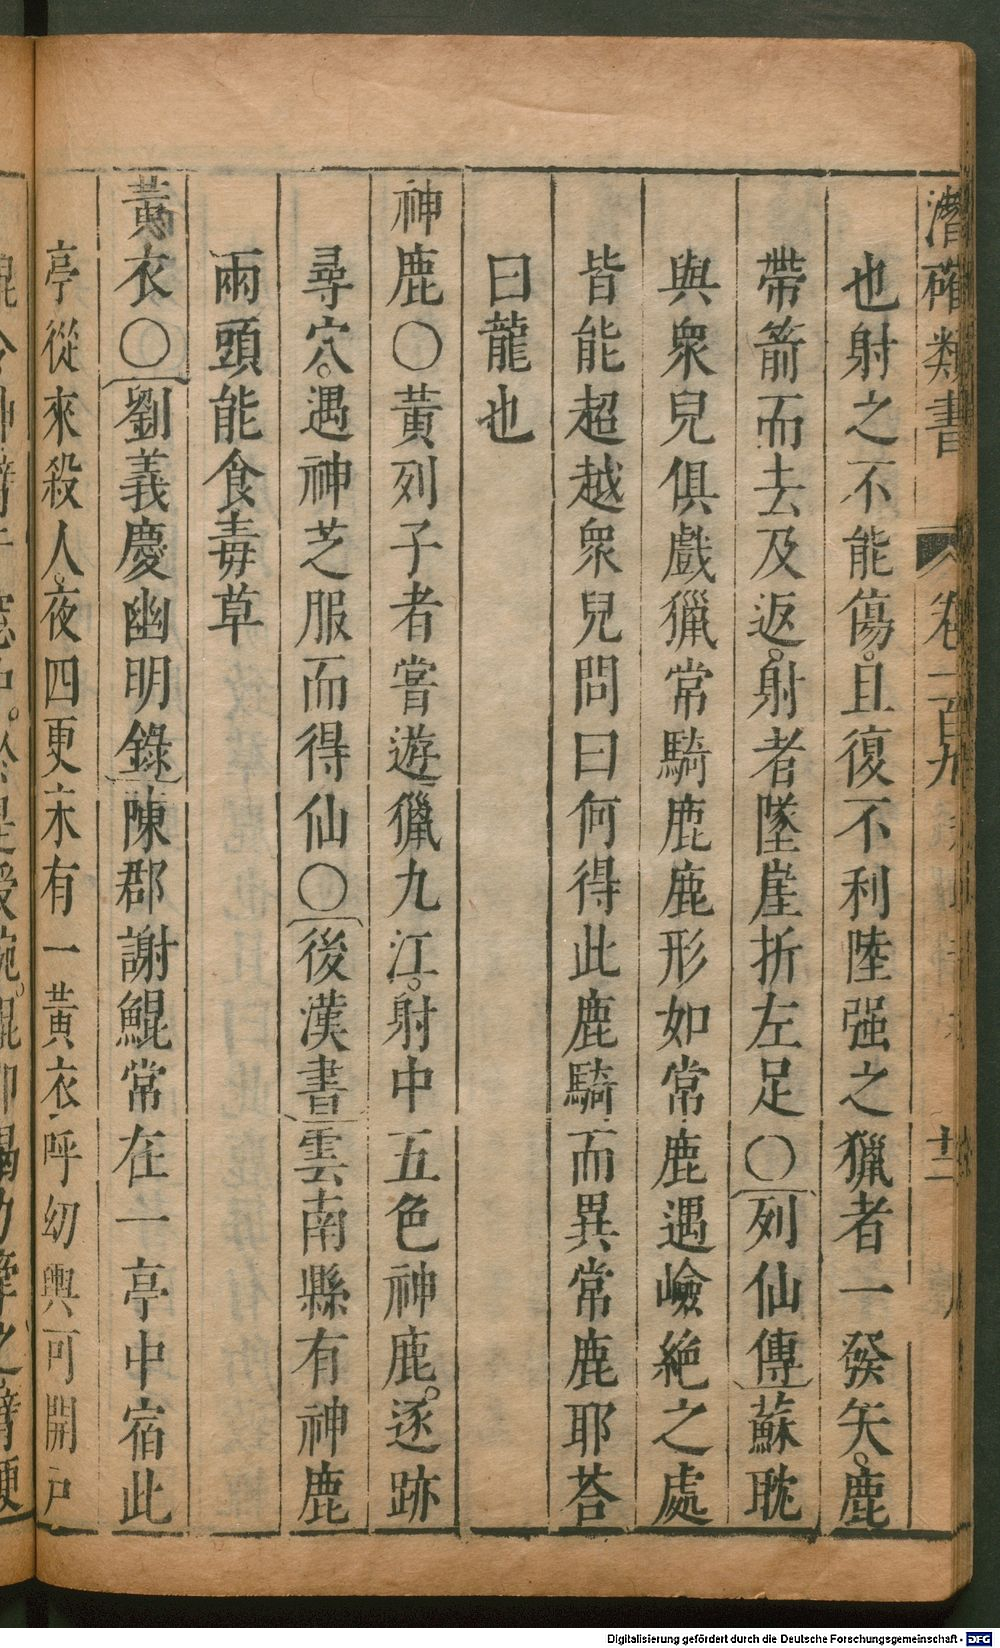 潛確類書 卷一百九 十二
也射之不能傷。且復不利陸强之獵者一發矢。鹿
帶箭而去及返。射者墜崖折左足〇列仙傳蘇耽
與衆兒俱戲獵常騎鹿鹿形如常鹿遇嶮絶之處
皆能超越衆兒問曰何得此鹿騎而異常鹿耶荅
曰龍也
神鹿〇黃列子者嘗遊獵九江。射中五色神鹿。逐跡
尋穴。遇神芝服而得仙〇後漢書雲南縣有神鹿
兩頭能食毒草
黃衣〇劉義慶幽明錄陳郡謝鯤常在一亭中宿此
亭從來殺人。夜四更末有一黃衣呼幼輿可開戶
Digitalisierung gefördert durch die Deutsche Forschungsgemeinschaft - DFG